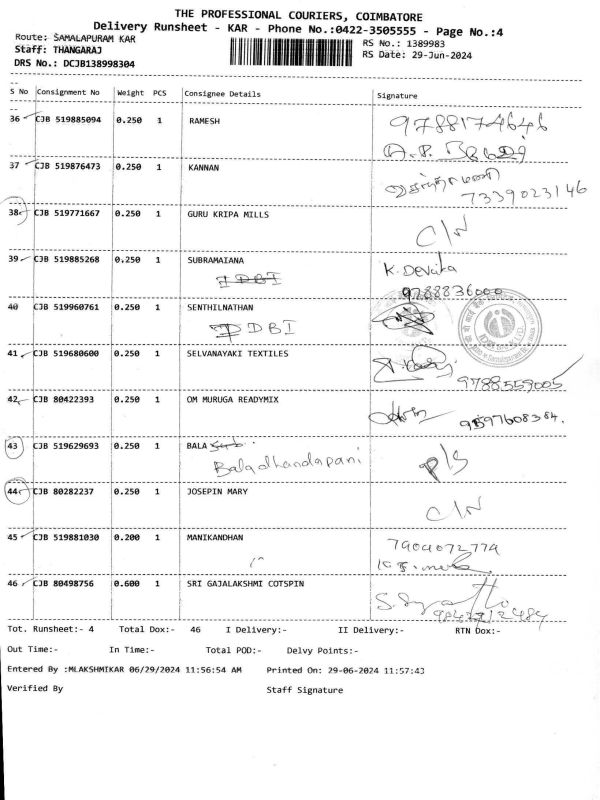 THE PROFESSIONAL COURIERS, COIMBATORE
Delivery Runsheet - KAR - Phone No.:0422-3505555 - Page No.:4
Route: SAMALAPURAM KAR RS No.: 1389983
Staff: THANGARAJ RS Date: 29-Jun-2024
DRS No.: DCJB138998304
S No Consignment No Weight PCS Consignee Details Signature
36 CJB 519885094 0.250 1 RAMESH 9788174646
37 CJB 519876473 0.250 1 KANNAN
7339023146
38 CJB 519771667 0.250 1 GURU KRIPA MILLS C/N
39 CJB 519885268 0.250 1 SUBRAMAIANA K. Devika
IDBI 9788836000
40 CJB 519960761 0.250 1 SENTHILNATHAN
IDBI
41 CJB 519680600 0.250 1 SELVANAYAKI TEXTILES
9788559005
42 CJB 80422393 0.250 1 OM MURUGA READYMIX
9597608384.
43 CJB 519629693 0.250 1 BALA
Baladhandapani P/S
44 CJB 80282237 0.250 1 JOSEPIN MARY
C/N
45 CJB 519881030 0.200 1 MANIKANDHAN 7904072779
46 CJB 80498756 0.600 1 SRI GAJALAKSHMI COTSPIN
Tot. Runsheet:- 4 Total Dox:- 46 I Delivery:- II Delivery:- RTN Dox:-
Out Time:- In Time:- Total POD:- Delvy Points:-
Entered By :MLAKSHMIKAR 06/29/2024 11:56:54 AM Printed On: 29-06-2024 11:57:43
Verified By Staff Signature